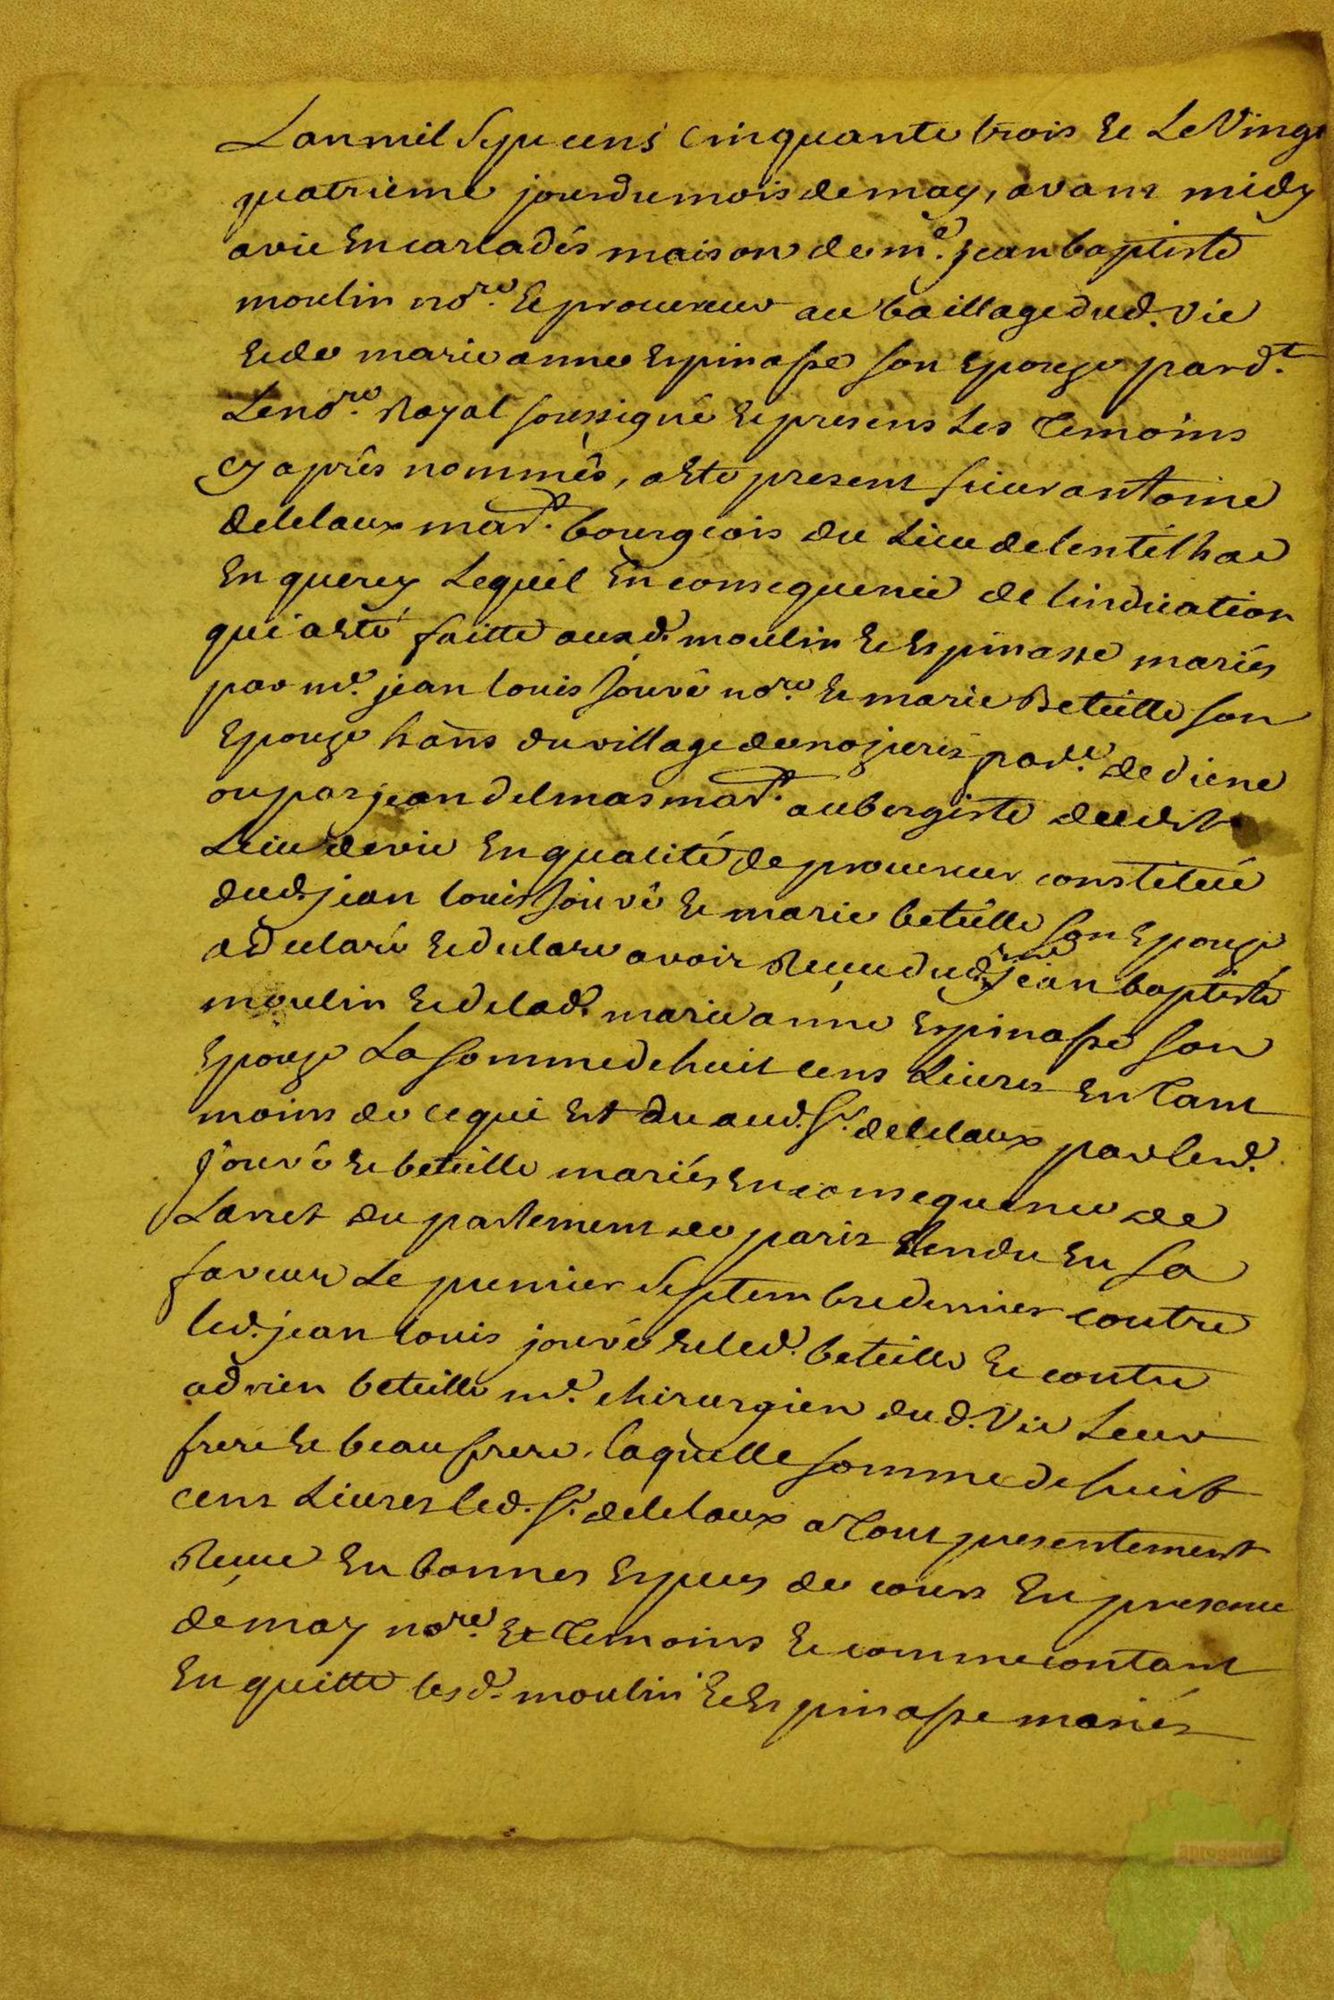 Lan mil Sept cens cinquante trois Et Le Vingt
quatrieme jour du mois de may, avant midy
a vic En carladés maison de me. jean baptiste
moulin nore. Et procureur au baillage dud. vic
Et de marie anne Espinasse son Epouze pardt.
Le nore. Royal soussigné Et presens Les Temoins
cy aprés nommés, a Esté present sieur antoine
delclaux mard. bourgeois du Lieu de lentilhac
En quercy Lequel En consequence de lindication
qui a Esté faitte auxd. moulin Et Espinasse mariés
par me. jean louis Jouvé nore. Et marie Beteille son
Epouze hāns du village de nozieres parse. de diene
ou par jean delmas mard. aubergiste dudit
Lieu de vic En qualité de procureur constitué
dud. jean louis Jouvé Et marie beteille son Epouze
a declaré Et declare avoir Receu dud. jean baptiste
moulin Et de lad. marie anne Espinasse son
Epouze La somme de huit cens Livres En Tant
moins de ce qui Est du aud. Sr. delclaux par lesd.
Jouvé Et beteille mariés En consequence de
Larret du parlement de paris Rendu En sa
faveur Le premier Septembre dernier contre
led. jean louis jouvé Et lad. beteille Et contre
adrien beteille me. chirurgien dud. Vic Leur
frere Et beau frere, laquelle somme de huit
cens Livres led. Sr. delclaux a Tout presentement
Receue En bonnes Especes de cours En presence
de moy nore. Et Temoins Et comme contant
En quitte lesd. moulin Et Espinasse mariés
aprogemere